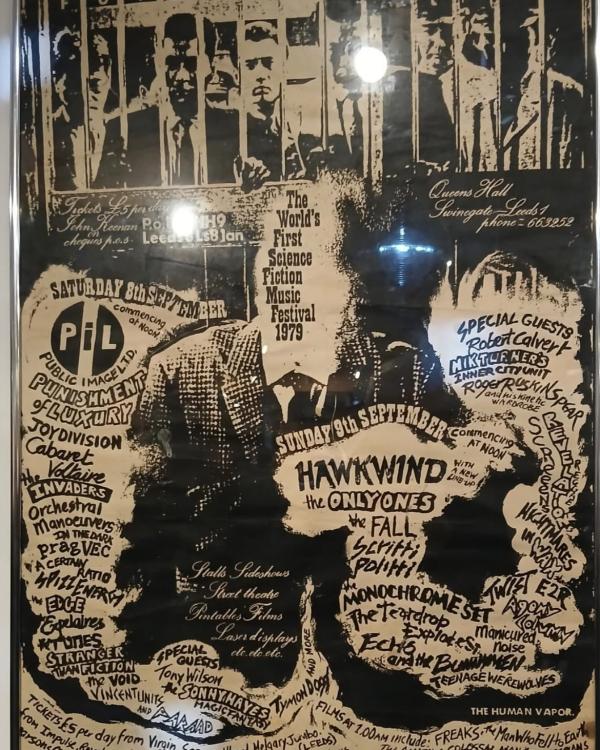 Tickets £5 per day
John Keenan P.o.
cheques p.o.s
Queens Hall
Swinegate Leeds 1
phone - 663252
The
World's
First
Science
Fiction
Music
Festival
1979
SATURDAY 8th SEPTEMBER
commencing
at NOON
PiL
PUBLIC IMAGE LTD.
PUNISHMENT
of LUXURY
JOY DIVISION
Cabaret
Voltaire
the INVADERS
Orchestral
Manoeuvers
IN THE DARK
pragVEC
A CERTAIN RATIO
SPIZZ ENERGI
the EDGE
Expelaires
STRANGER
THAN FICTION
the VOID
VINCENT UNITS
AND
SPECIAL
GUESTS
Tony Wilson
SPECIAL GUESTS
Robert Calvert
NIK TURNER'S
INNER CITY UNIT
ROGER RUSKIN SPEAR
and his kinetic
WARDROBE
SUNDAY 9th SEPTEMBER
commencing
AT NOON
HAWKWIND
WITH
A NEW
LINE-UP
the ONLY ONES
the FALL
Scritti
Politti
MONOCHROME SET
The Teardrop
Explodes
Echo
and the BUNNYMEN
TEENAGE WEREWOLVES
NIGHTMARES
IN WAX
TWIST
AGONY
COLUMN
Manicured
Noise
Stalls Sideshows
Street theatre
Pintables Films
Laser displays
etc.etc.etc.
TYMON DOGG
AND MORE
THE HUMAN VAPOR.
TICKETS £5 per day from Virgin
FILMS AT 7.00AM include: FREAKS, the Man Who Fell to Earth
from Impulse
(LEEDS)